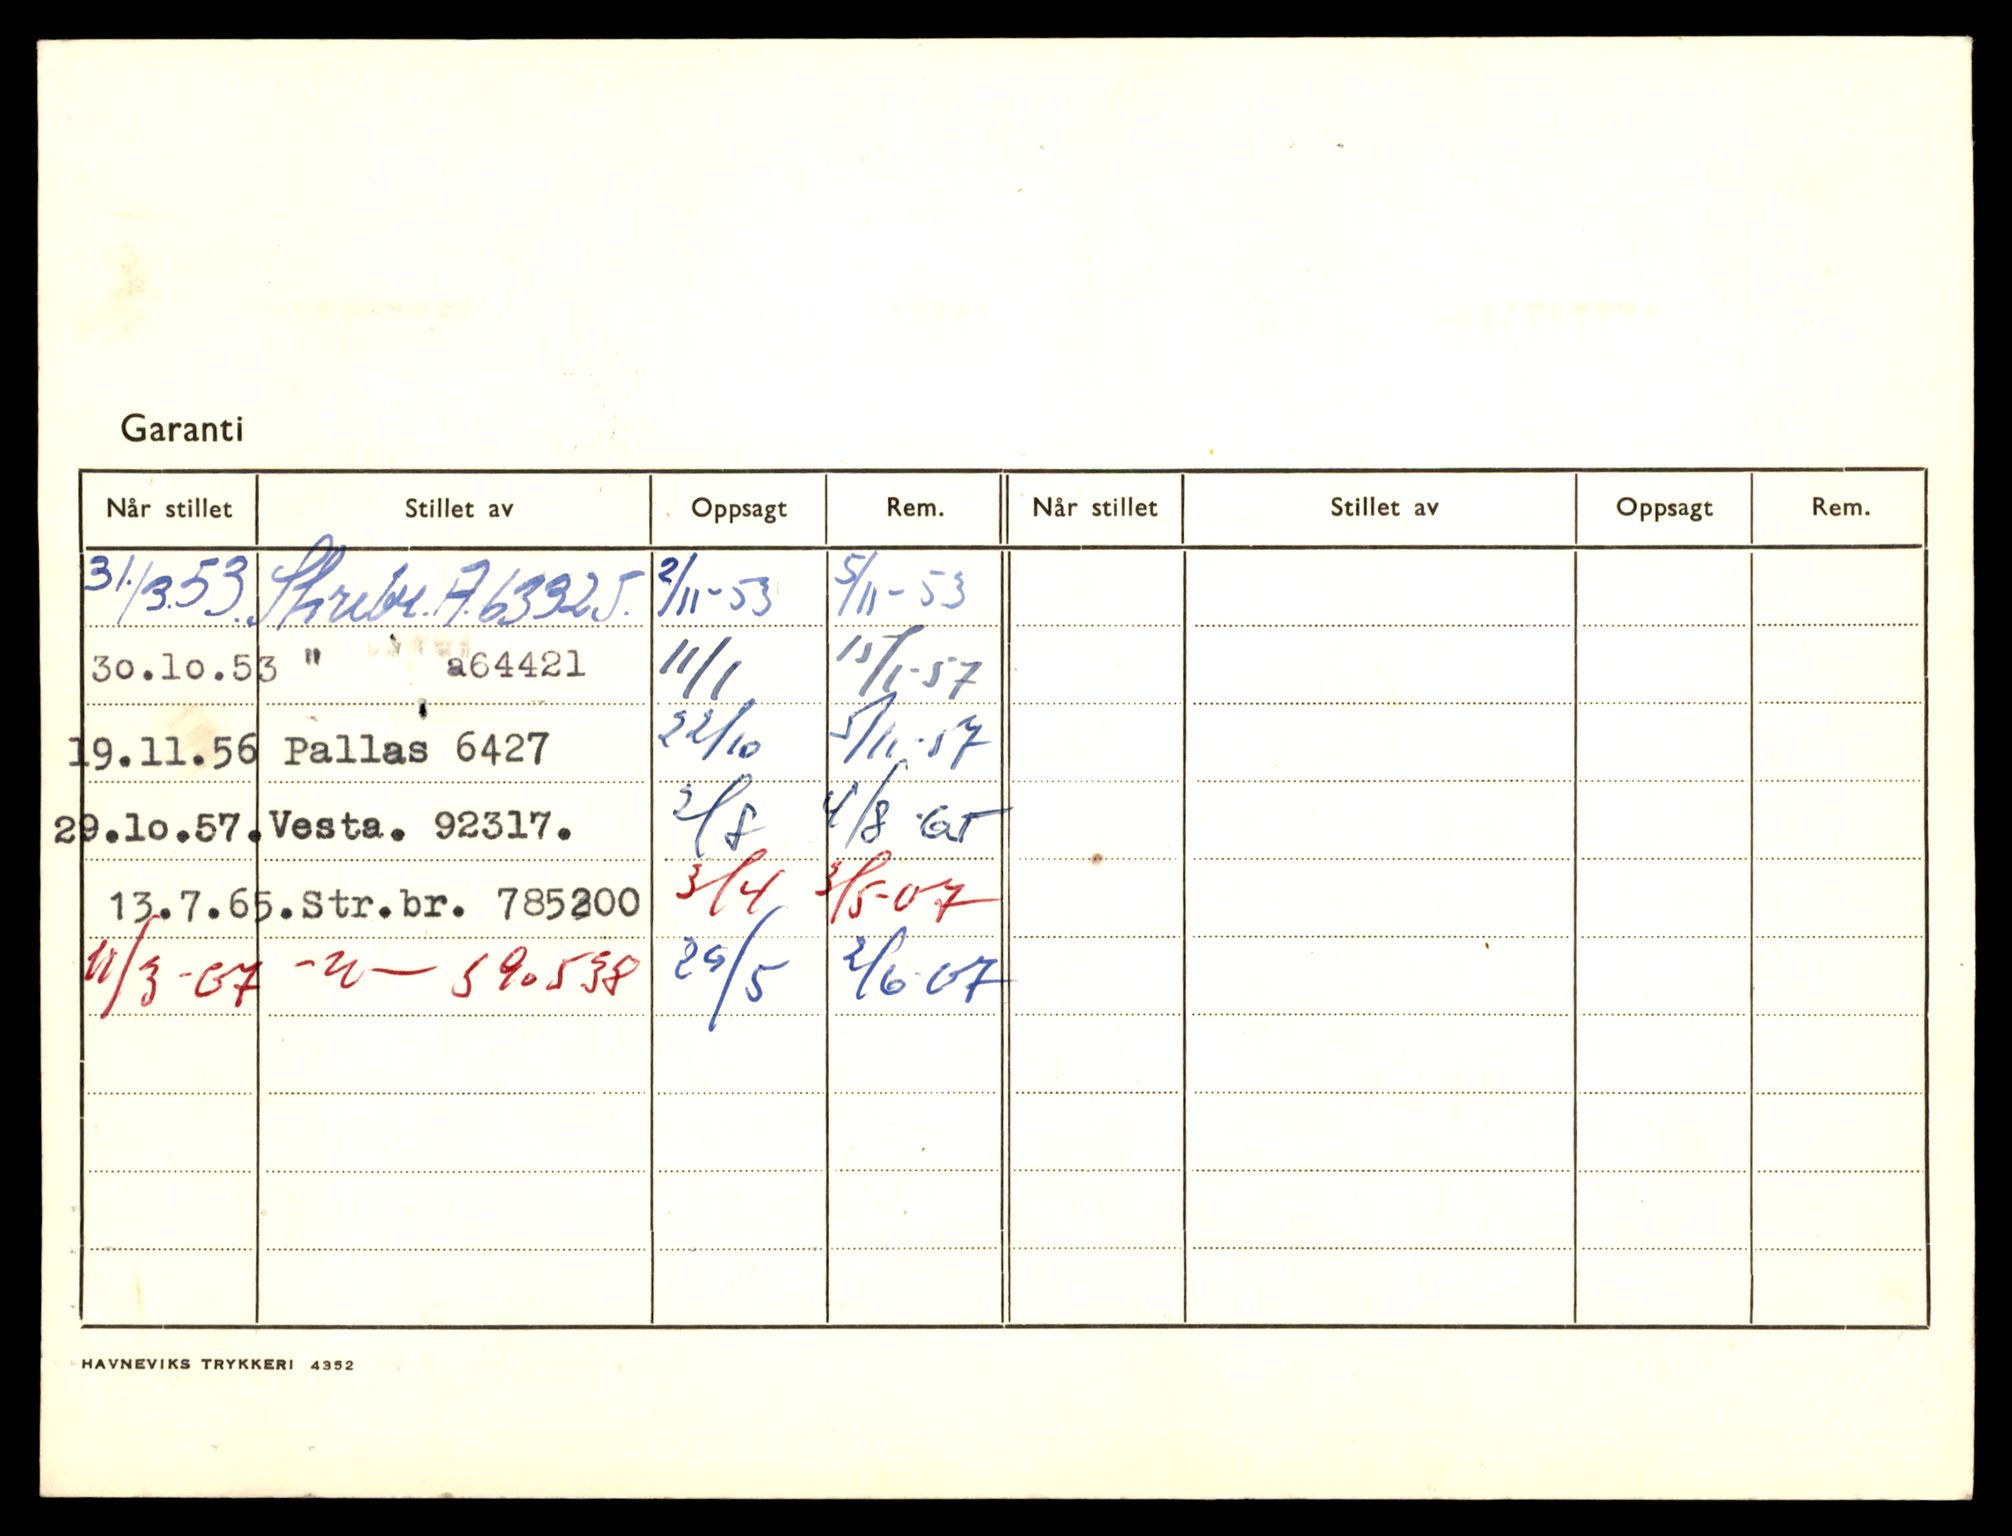 Garanti
Når stillet Stillet av Oppsagt Rem. Når stillet Stillet av Oppsagt Rem.
31./3.53. A.63325. 2/11-53 5/11-53
30.10.53 " a64421 11/1 15/1-57
19.11.56 Pallas 6427 22/10 5/11-57
29.10.57. Vesta. 92317. 2/8 4/8-65
13.7.65. Str.br. 785200 3/4 3/5-67
11/3-67 -"- 590538 29/5 2/6-67
HAVNEVIKS TRYKKERI 4352